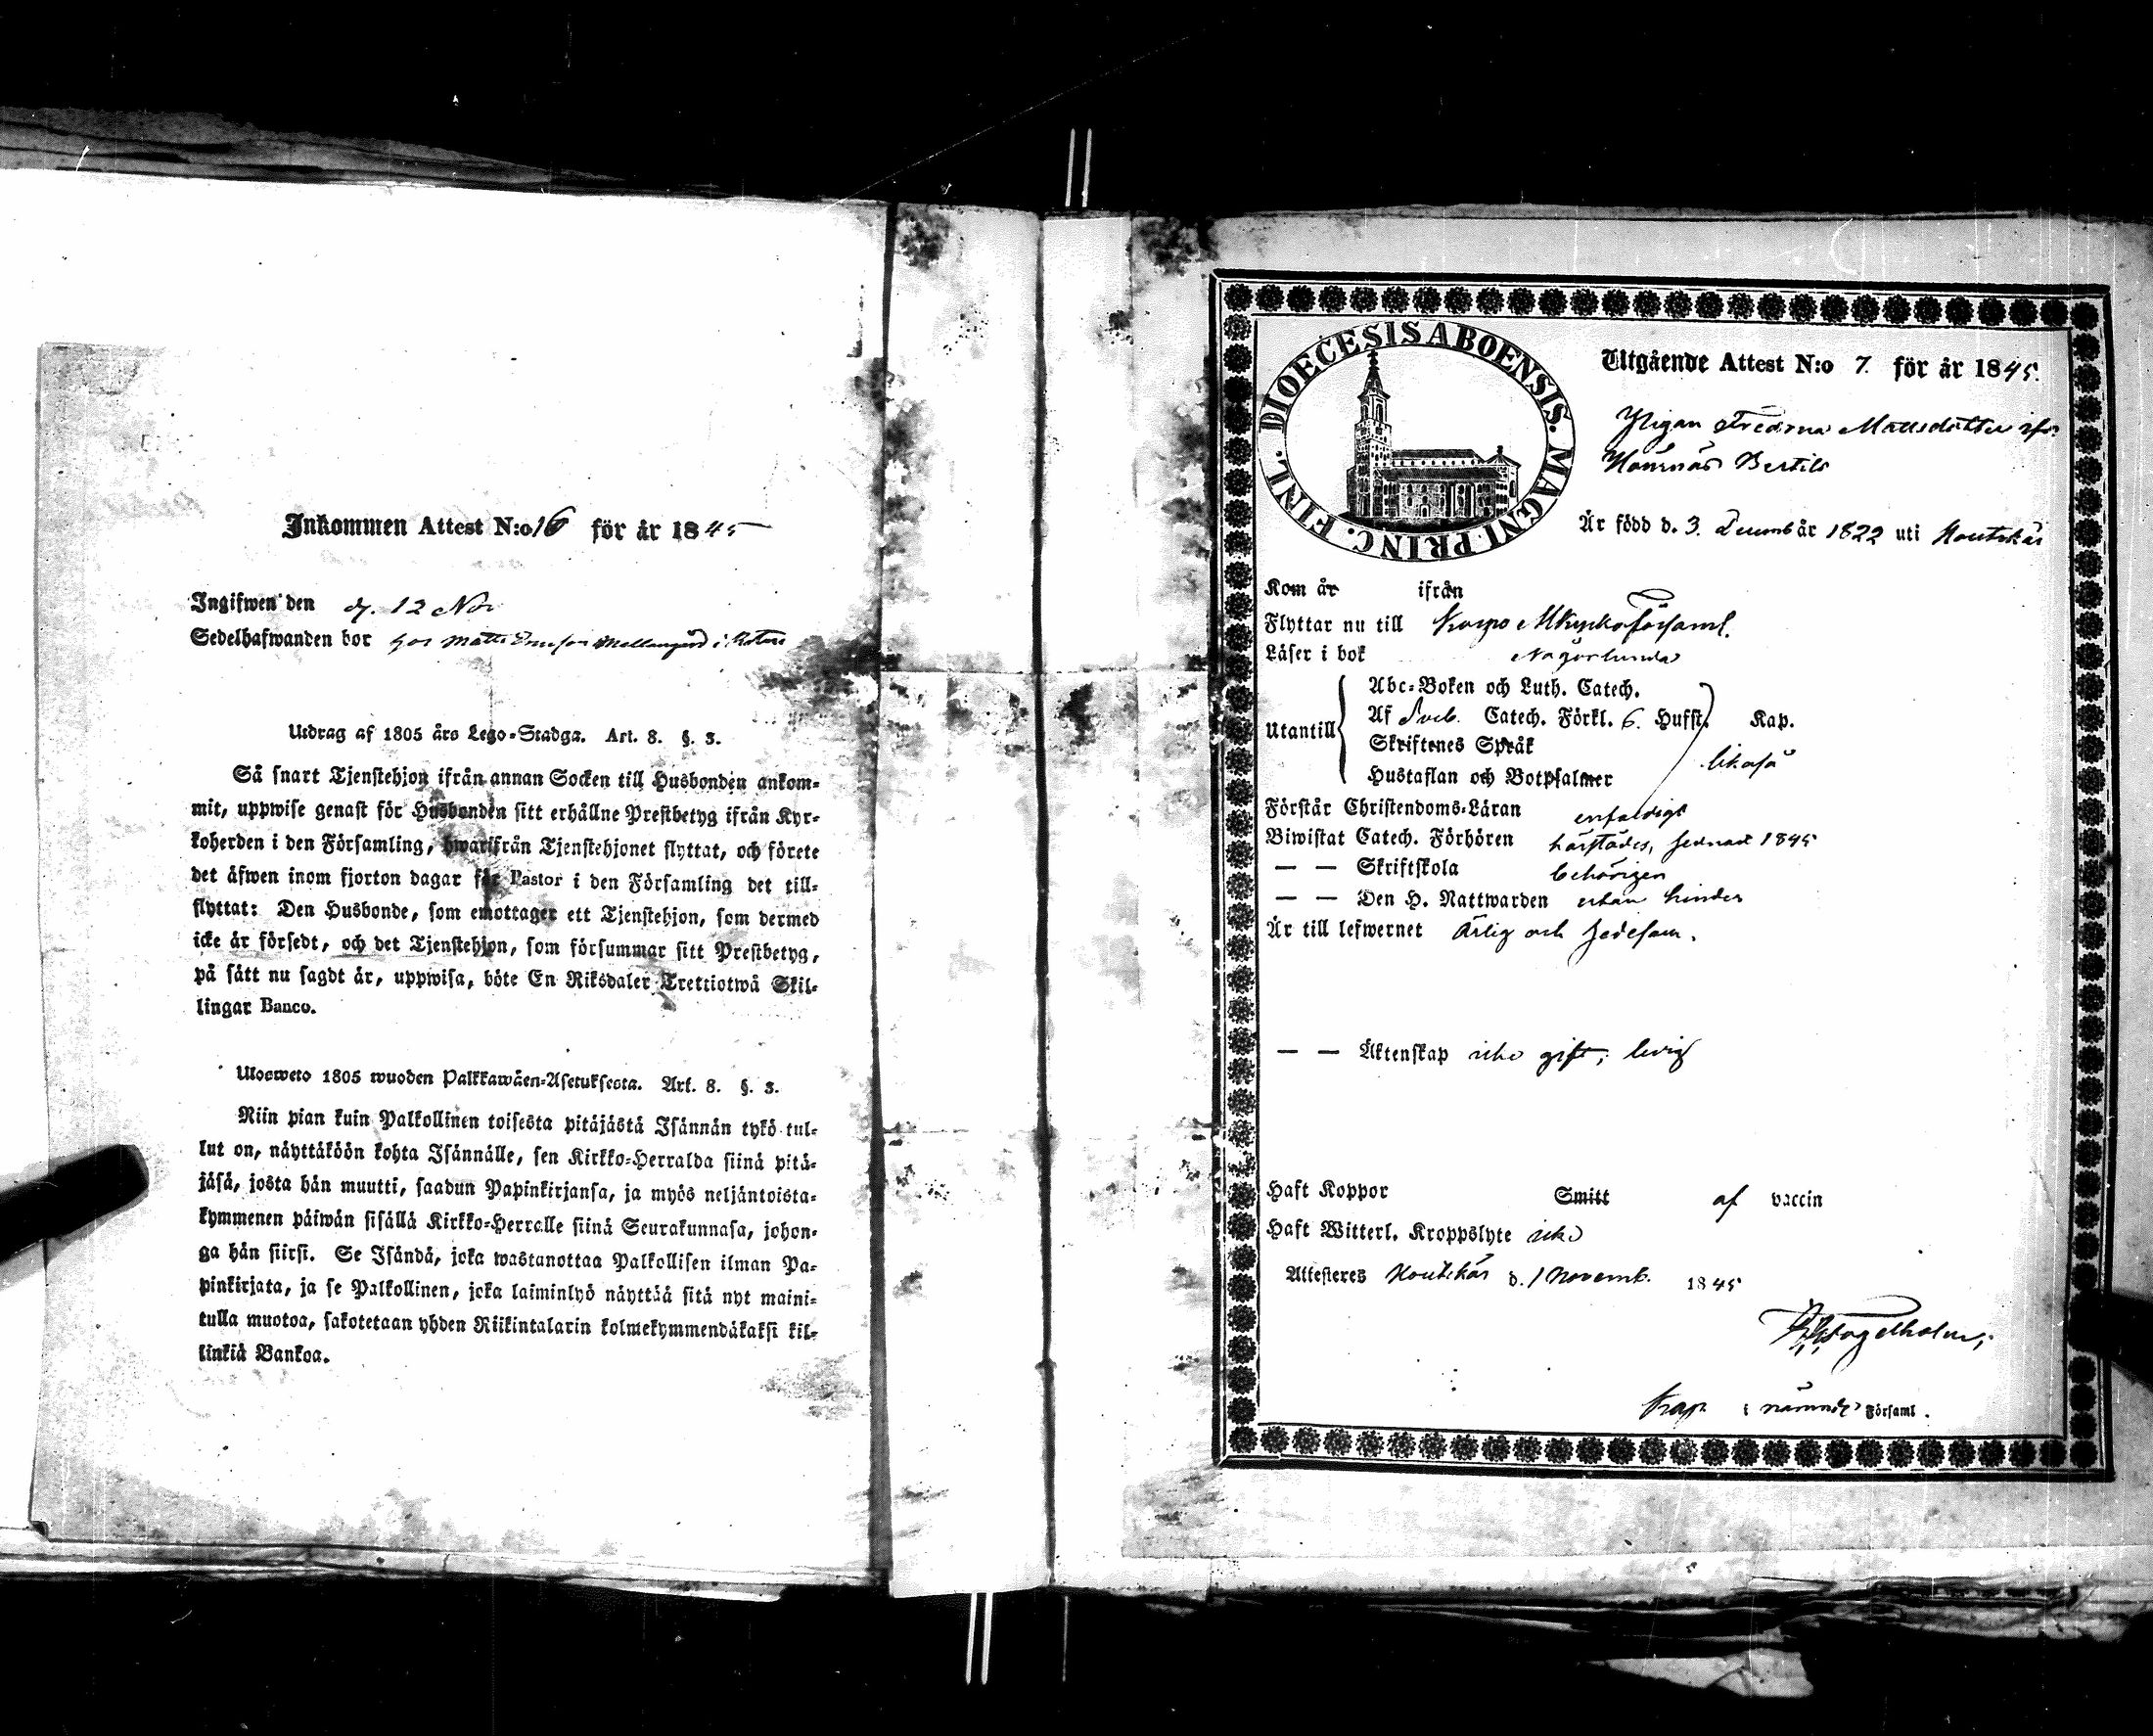 Inkommen Attest N:o 16 för år 1845
Ingifwen den d. 12 Nov
Sedelhafwanden bor hos Matts Mellangård i
Utdrag af 1805 års Lego-Stadga. Art. 8. §. 3.
Så snart Tjenstehjon ifrån annan Socken till Husbonden ankom-
mit, uppwise genast för Husbonden sitt erhållne Prestbetyg ifrån Kyr-
koherden i den Församling, hwarifrån Tjenstehjonet flyttat, och förete
det äfwen inom fjorton dagar för Pastor i den Församling det till-
flyttat: Den Husbonde, som emottager ett Tjenstehjon, som dermed
icke är försedt, och det Tjenstehjon, som försummar sitt Prestbetyg,
på sätt nu sagdt är, uppwisa, böte En Riksdaler Trettiotwå Skil-
lingar Banco.
Ulosweto 1805 wuoden Palkkawäen-Asetuksesta. Art. 8. §. 3.
Niin pian kuin Palkollinen toisesta pitäjästä Isännän tykö tul-
lut on, näyttäköön kohta Isännälle, sen Kirkko-Herralda siinä pitä-
jäsä, josta hän muutti, saadun Papinkirjansa, ja myös neljäntoista-
kymmenen päiwän sisällä Kirkko-Herralle siinä Seurakunnasa, johon-
ga hän siirsi. Se Isändä, joka wastanottaa Palkollisen ilman Pa-
pinkirjata, ja se Palkollinen, joka laiminlyö näyttää sitä nyt maini-
tulla muotoa, sakotetaan yhden Riikintalarin kolmekymmendäkaksi kil-
linkiä Bankoa.
DIOECESIS ABOENSIS. MAGNI. PRINC. FINL.
Utgående Attest N:o 7. för år 1845.
Pigan Fredrica Mattsdotter ifrån
Hömnäs Bertils
Är född d. 3. Decemb år 1822 uti Houtskär
Kom år ifrån
Flyttar nu till Korpo Mkyrkoförsaml.
Läser i bok någorlunda
Utantill
Abc-Boken och Luth. Catech.
Af Sveb. Catech. Förkl. 6. Hufst. Kap.
Skriftenes Språk
Hustaflan och Botpsalmer
likaså
Förstår Christendoms-Läran enfaldigt
Biwistat Catech. Förhören härstädes, sednast 1845
— — Skriftskola behörigen
— — Den H. Nattwarden utan hinder
Är till lefwernet Ärlig och sedesam.
— — Äktenskap icke gift; ledig
Haft Koppor Smitt af vaccin
Haft Witterl. Kroppslyte icke
Attesteres Houtskär d. 1 Novemb. 1845
Fogelholm
Kap. i nämnde Församl.